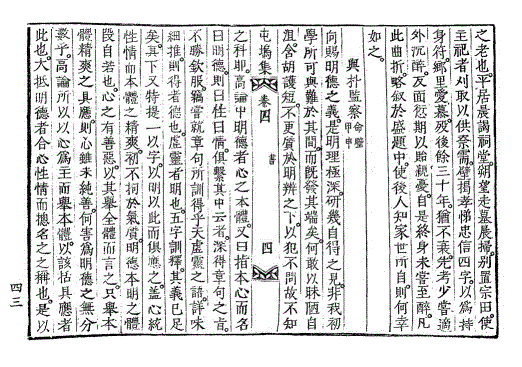 之老也。平居晨謁祠堂。朔望走墓晨掃。別置宗田。使
主祀者刈取以供粢需。壁揭孝悌忠信四字。以為持
身符。鄉里愛慕。歿後餘三十年。猶不衰。先考少嘗適
外沉醉。反面衍期以貽親憂。自是終身未嘗至醉。凡
此曲折。略敘於盛題中。使後人知家世所自。則何幸
如之。
與朴監察 命璧 甲申
向賜明德之義。是明理極深。研幾自得之見。非我初
學所可與難於其間。而旣發其端矣。何敢以昧陋自
沮。舍胡護短。不更質於明辨之下。以犯不問故不知
屯塢集 卷四 書 四
之科耶。高論中明德者心之本體。又曰指本心而名
曰明德。則曰性曰情。俱繫其中云者。深得章句之旨。
不勝欽服。竊嘗就章句所訓得乎天虛靈之語。詳味
細推。則得者德也。虛靈者明也。五字訓釋。其義已足
矣。其下又特提一以字。以明以此而俱應之。蓋心統
性情而本體之精爽初不拘於氣質。明德本明之體
段自若也。心之有善惡。以其擧全體而言之。只擧本
體精爽之具應。則心雖未純善。何害為明德之無分
數乎。高論所以以心為主而擧本體。以該括具應者
此也。大抵明德者合心性情而摠名之之稱也。是以
四三